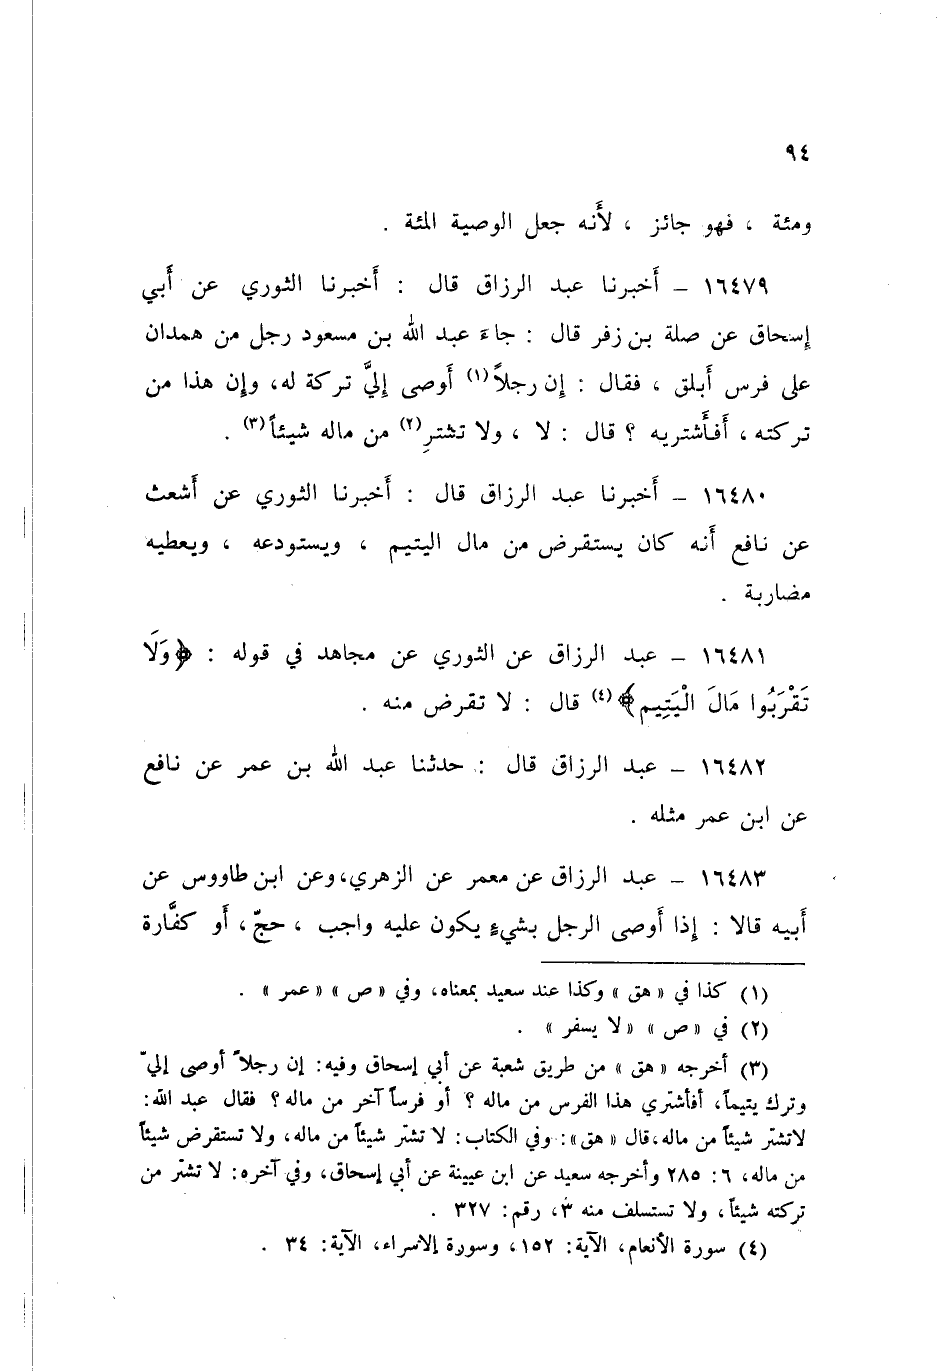 ٩٤
ومئة ، فهو جائز ، لأَنه جعل الوصية المئة .
١٦٤٧٩ – أَخبرنا عبد الرزاق قال : أَخبرنا الثوري عن أَبي
إسحاق عن صلة بن زفر قال : جاءَ عبد الله بن مسعود رجل من همدان
على فرس أَبلق ، فقال : إن رجلاً(١) أَوصى إليَّ تركة له، وإن هذا من
تركته ، أَفأَشتريه ؟ قال : لا ، ولا تشترِ(٢) من ماله شيئاً(٣) .
١٦٤٨٠ – أَخبرنا عبد الرزاق قال : أَخبرنا الثوري عن أَشعث
عن نافع أَنه كان يستقرض من مال اليتيم ، ويستودعه ، ويعطيه
مضاربة .
١٦٤٨١ – عبد الرزاق عن الثوري عن مجاهد في قوله : ﴿وَلَا
تَقْرَبُوا مَالَ الْيَتِيمِ﴾(٤) قال : لا تقرض منه .
١٦٤٨٢ – عبد الرزاق قال : حدثنا عبد الله بن عمر عن نافع
عن ابن عمر مثله .
١٦٤٨٣ – عبد الرزاق عن معمر عن الزهري، وعن ابن طاووس عن
أَبيه قالا : إذا أَوصى الرجل بشيءٍ يكون عليه واجب ، حجّ ، أَو كفَّارة
(١) كذا في « هق » وكذا عند سعيد بمعناه، وفي « ص » « عمر » .
(٢) في « ص » « لا يسفر » .
(٣) أخرجه « هق » من طريق شعبة عن أبي إسحاق وفيه: إن رجلاً أوصى إليّ
وترك يتيماً، أفأشتري هذا الفرس من ماله ؟ أو فرساً آخر من ماله ؟ فقال عبد الله:
لاتشترِ شيئاً من ماله، قال « هق »: وفي الكتاب: لا تشترِ شيئاً من ماله، ولا تستقرض شيئاً
من ماله، ٦: ٢٨٥ وأخرجه سعيد عن ابن عيينة عن أبي إسحاق، وفي آخره: لا تشترِ من
تركته شيئاً، ولا تستسلف منه ٣، رقم: ٣٢٧ .
(٤) سورة الأنعام، الآية: ١٥٢، وسورة الاسراء، الآية: ٣٤ .